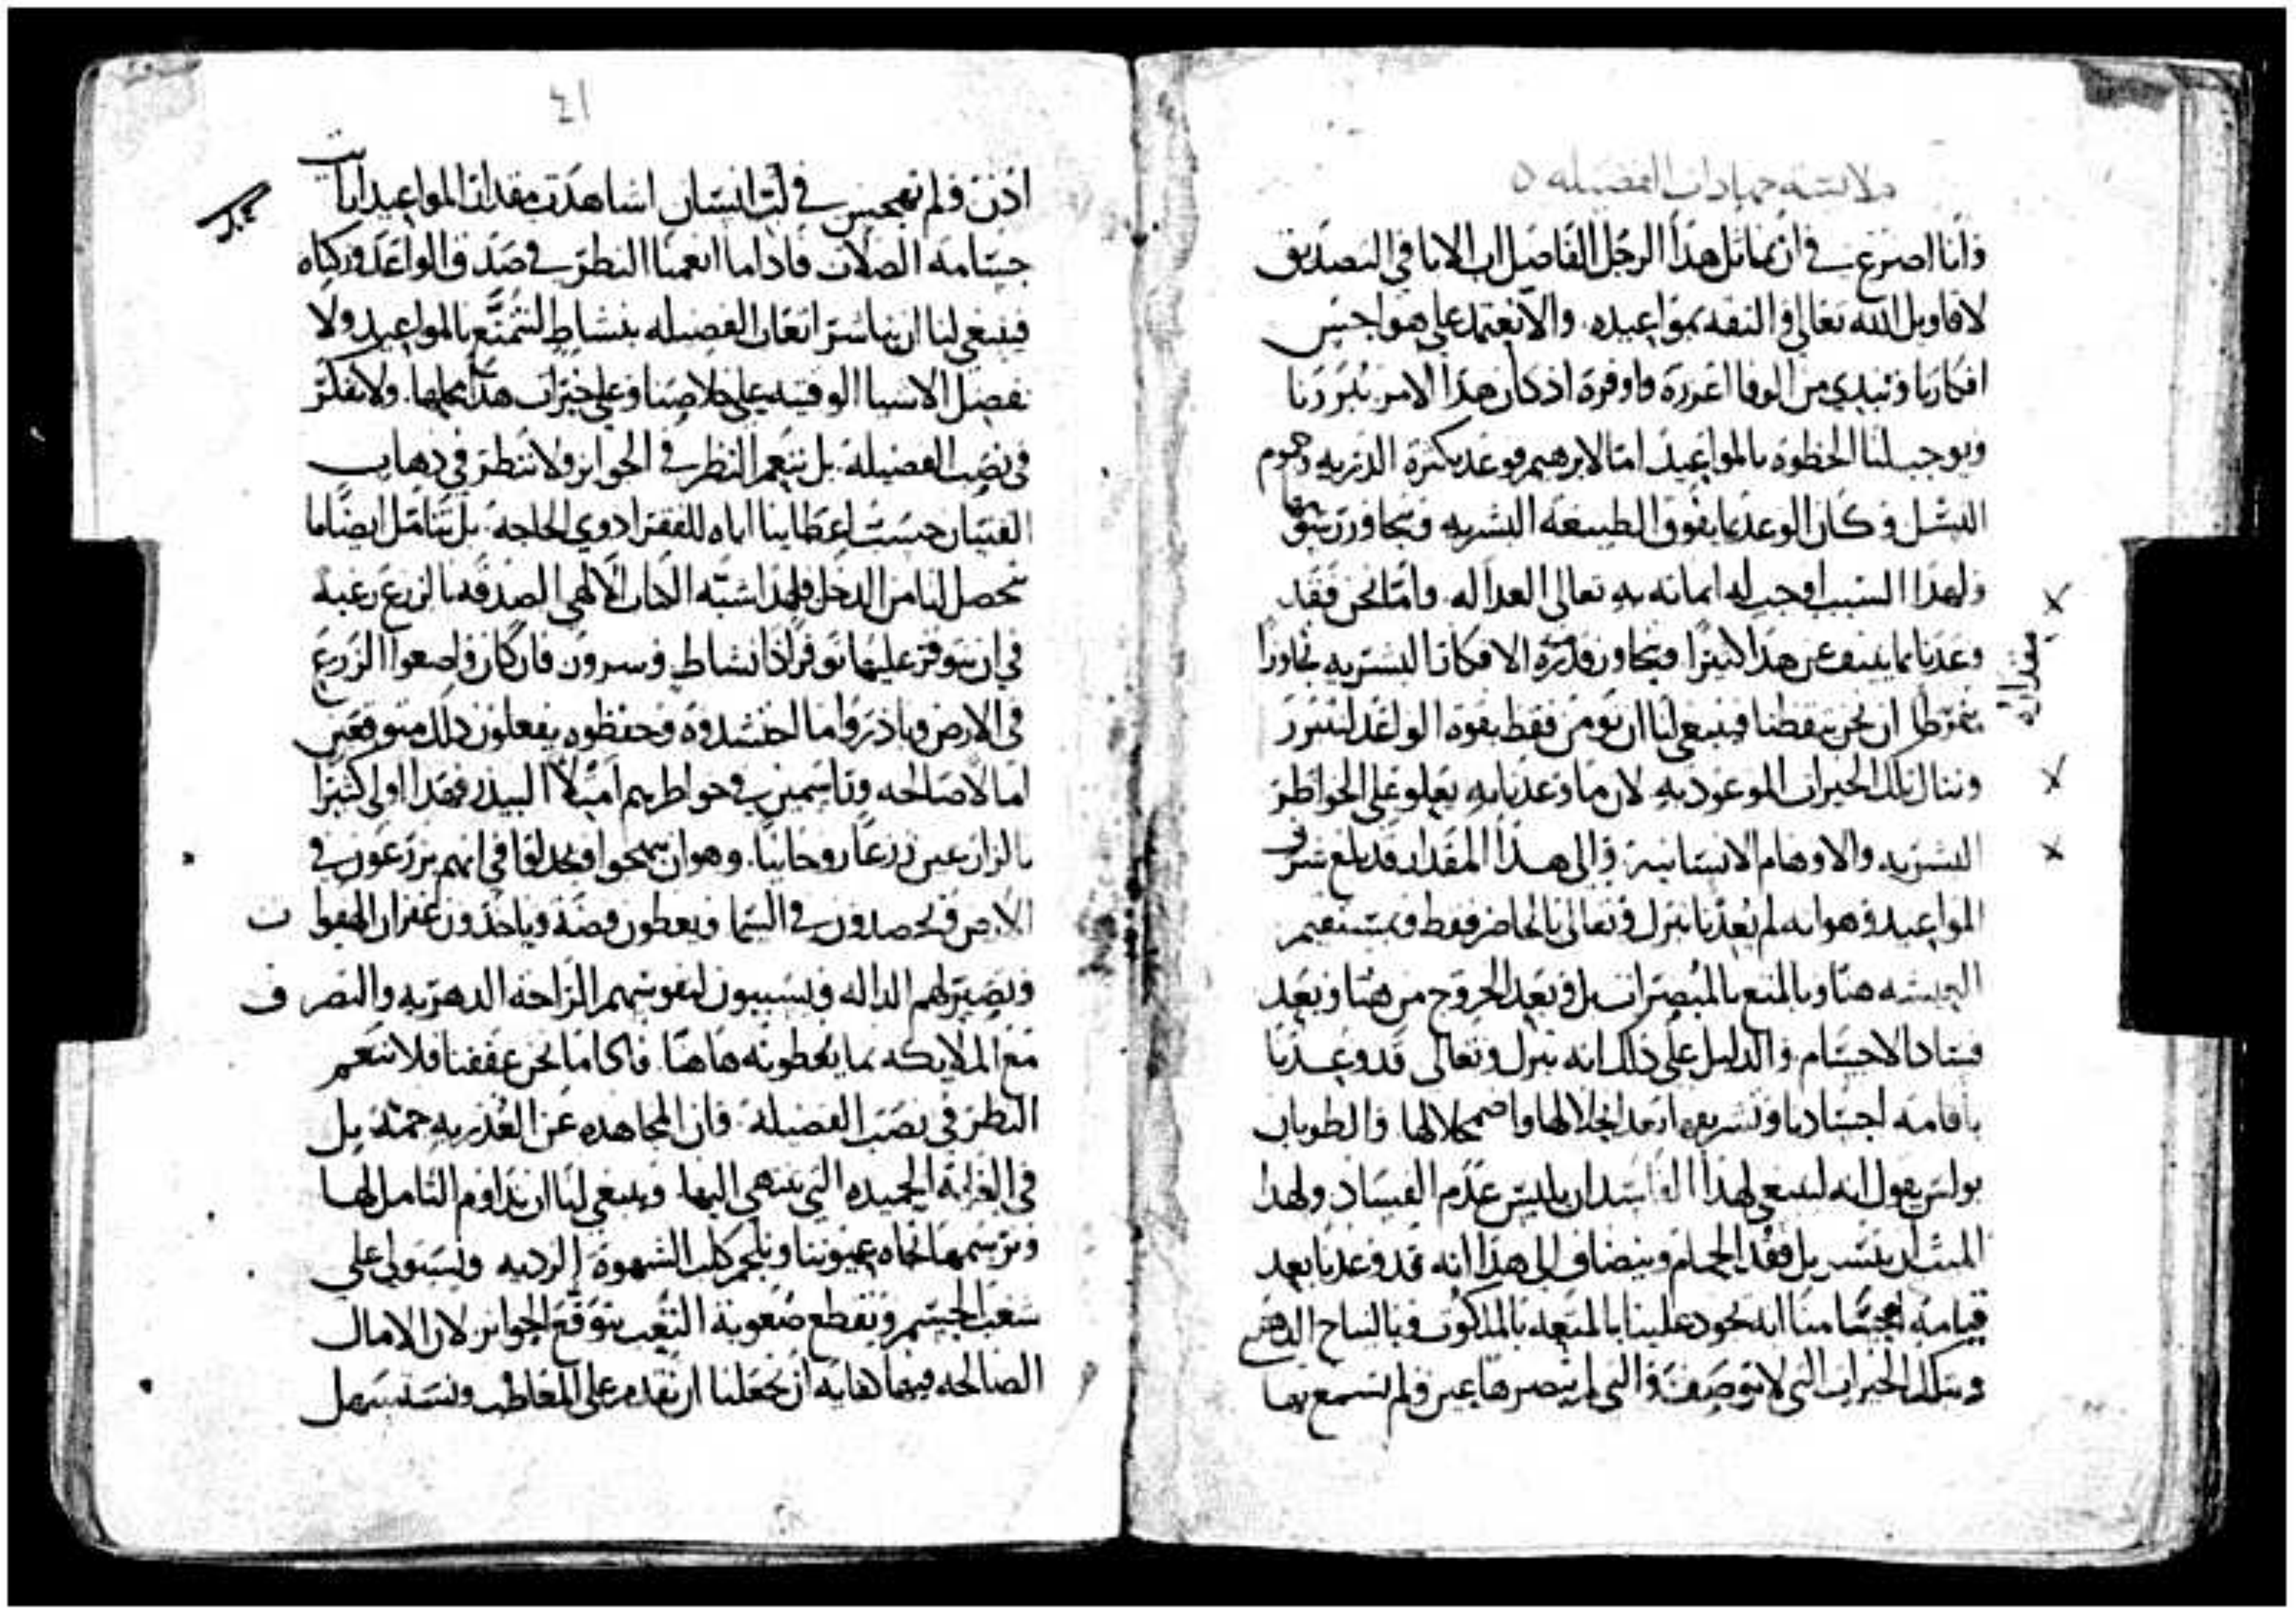 ملابسه جهادات الفضيله
وانا اضرع في ان نماثل هذا الرجل الفاضل اب الابا في التصديق
لاقاويل الله تعالى والثقه بمواعيده. والا نعتمد على هواجس
افكارنا ونبدي من الوفا اغزره واوفره اذ كان هذا الامر يبررنا
ويوجب لنا الحظوه بالمواعيد اما لابرهيم فوعد بكثرة الذريه وجموم
النسل وكان الوعد بما يفوق الطبيعه البشريه ويتجاوز
ولهذا السبب اوجب له ايمانه به تعالى العداله. واما نحن فقد
وعدنا بما ينيف عن هذا كثيرا ويتجاوز قدرة الافكار البشريه تجاوزا
مقداره
ان نحن تيقظنا فينبغي لنا ان نومن فقط بقوة الواعد لنتبرر
وننال تلك الخيرات الموعود به لان ما وعدنا به يعلو على الخواطر
البشريه والاوهام الانسانيه والى هذا المقدار قد بلغ شرف
المواعيد وهو انه لم يعدنا تبرك وتعالى بالحاضر فقط
هنا وبالمتع بالمبصرات بل وبعد الخروج من هنا وبعد
فساد الاجسام والدليل على ذلك انه تبرك وتعالى قد وعدنا
باقامة اجسادنا بعد انحلالها واضمحلالها والطوبان
بولس يقول انه لينبغي لهذا الفاسد ان يلبس عدم الفساد ولهذا
المايت ان يتسربل فقد الحمام وينضاف الى هذا انه قد وعدنا بعد
قيامة اجسامنا انه يجود علينا بالمتعه بالملكوت وبالنياح الدهري
وبتلك الخيرات التي لا توصف والتي لم تبصرها عين ولم تسمع بها
٤١
اذن ولم تهجس في لب انسان اشاهدت مقدار المواعيد ارايت
جسامة الصلات فاذا ما انعمنا النظر في صدق الواعد وزكاه
فينبغي لنا ان نباشر اتعاب الفضيله بنشاط لنتمتع بالمواعيد ولا
نفضل الاشيا الوقتيه على خلاصنا وعلى خيرات هذا محلها. ولا نفكر
في نصب الفضيله. بل ننعم النظر في الجوايز ولا ننظر في ذهاب
القنيان حسب اعطاينا اياه للفقرا ذوي الحاجه. بل نتامل ايضا ما
يحصل لنا من الدخل فلهذا اشبه الكتاب الالهي الصدقه بالزرع رغبة
في ان نتوفر عليها توفرا ذا نشاط وسرور. فان كان واضعوا الزرع
في الارض وباذروا ما احتشدوه وحفظوه يفعلون ذلك متوقعين
امالا صالحه وراسمين في خواطرهم امتلا البيدر فهذا اولى كثيرا
بالزارعين زرعا روحانيا. وهو ان يبتهجوا في انهم يزرعون في
الارض ويحصدون في السما ويعطون فضه وياخذون غفران الهفوات
وتصير لهم الداله ويسببون لنفوسهم الراحه الدهريه والتصرف
مع الملايكه بما يعطونه هاهنا. فاما نحن عففنا فلا ننعم
النظر في نصب الفضيله. فان المجاهده عن العذريه جمة بل
في الغايه الحميده التي تنتهي اليها. وينبغي لنا ان نداوم التامل لها
ونرسمها تجاه عيوننا ونلجم كلب الشهوه الرديه ونستولي على
شغب الجسم ونقطع صعوبة التعب بتوقع الجوايز لان الامال
الصالحه فيها كفايه ان تجعلنا ان نقدم على المعاطب ونستسهل